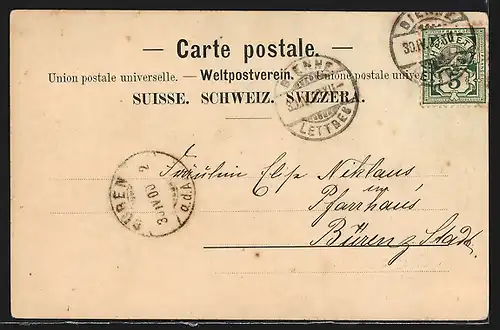 — Carte postale. —
Union postale universelle. — Weltpostverein. — Unione postale univer
SUISSE. SCHWEIZ. SVIZZERA.
BIENNE
LETTRES
BIENNE
30.IV.
5
BÜREN
30 IV 00
Fräulein Elsa Niklaus
im
Pfarrhaus
Büren z. Stadt